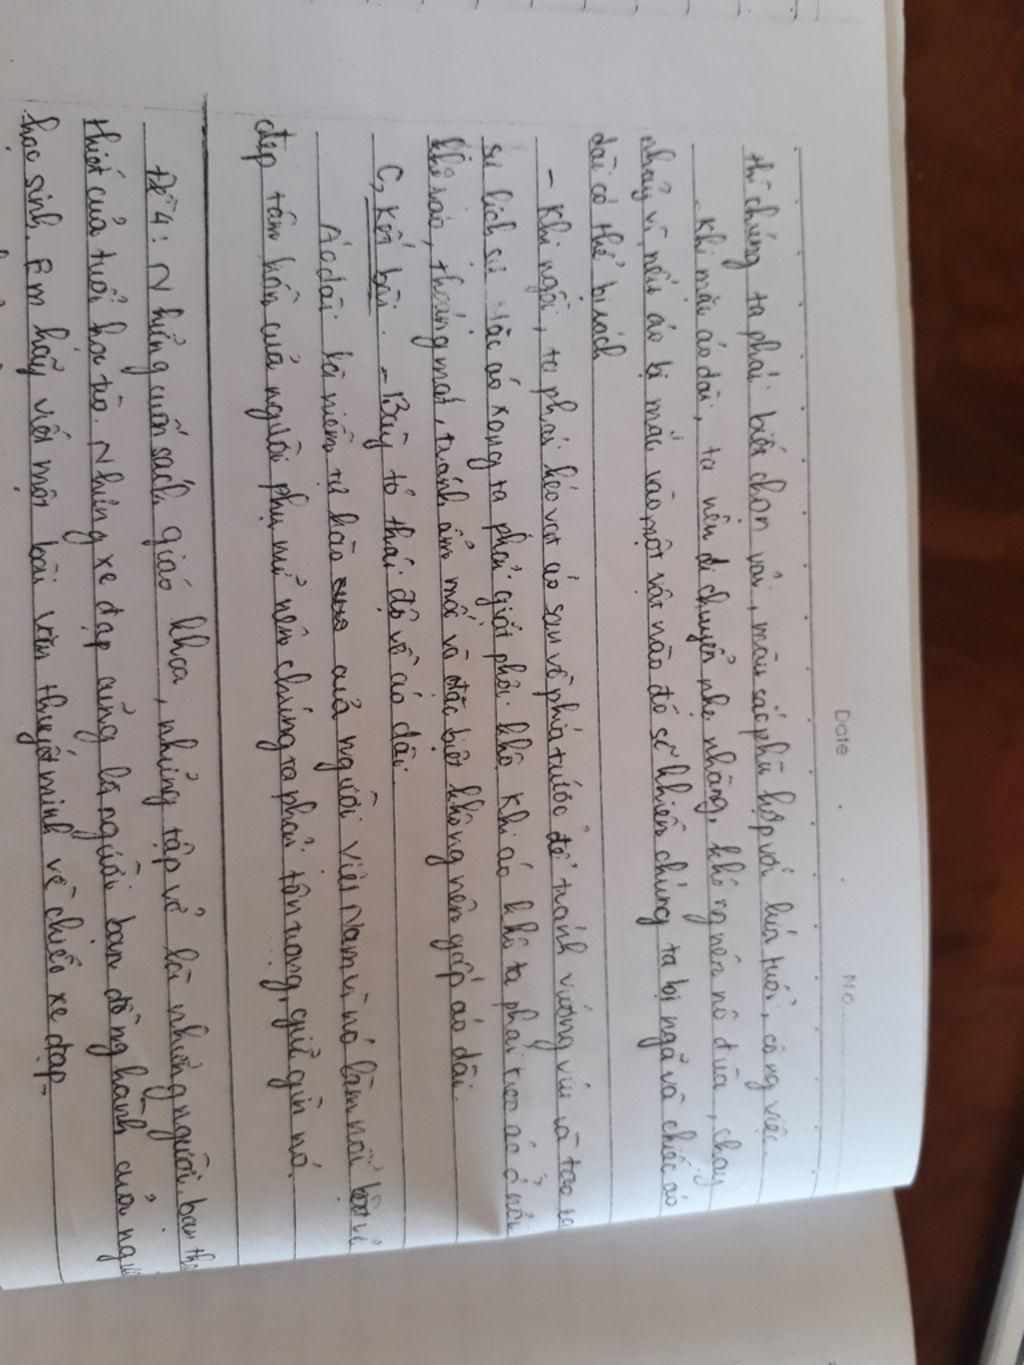 Date
No
thì chúng ta phải biết chọn vải, màu sắc phù hợp với lứa tuổi, công việc
- Khi mặc áo dài, ta nên di chuyển nhẹ nhàng, không nên nô đùa, chạy
nhảy vì nếu áo bị mắc vào một vật nào đó sẽ khiến chúng ta bị ngã và chiếc áo
dài có thể bị rách
- Khi ngồi, ta phải kéo vạt áo sau về phía trước để tránh vướng víu và tạo ra
sự lịch sự mặc áo xong ta phải giặt phơi khô. Khi áo khô ta phải treo áo ở nơi
khô ráo, thoáng mát, tránh ẩm mốc và đặc biệt không nên gấp áo dài.
C, Kết bài. - Bày tỏ thái độ về áo dài.
Áo dài là niềm tự hào của người Việt Nam vì nó làm nổi bật vẻ
đẹp tâm hồn của người phụ nữ nên chúng ta phải tôn trọng, giữ gìn nó.
Đề 4: Những cuốn sách giáo khoa, những tập vở là những người bạn
thiết của tuổi học trò. Những xe đạp cũng là người bạn đồng hành của
học sinh. Em hãy viết một bài văn thuyết minh về chiếc xe đạp.